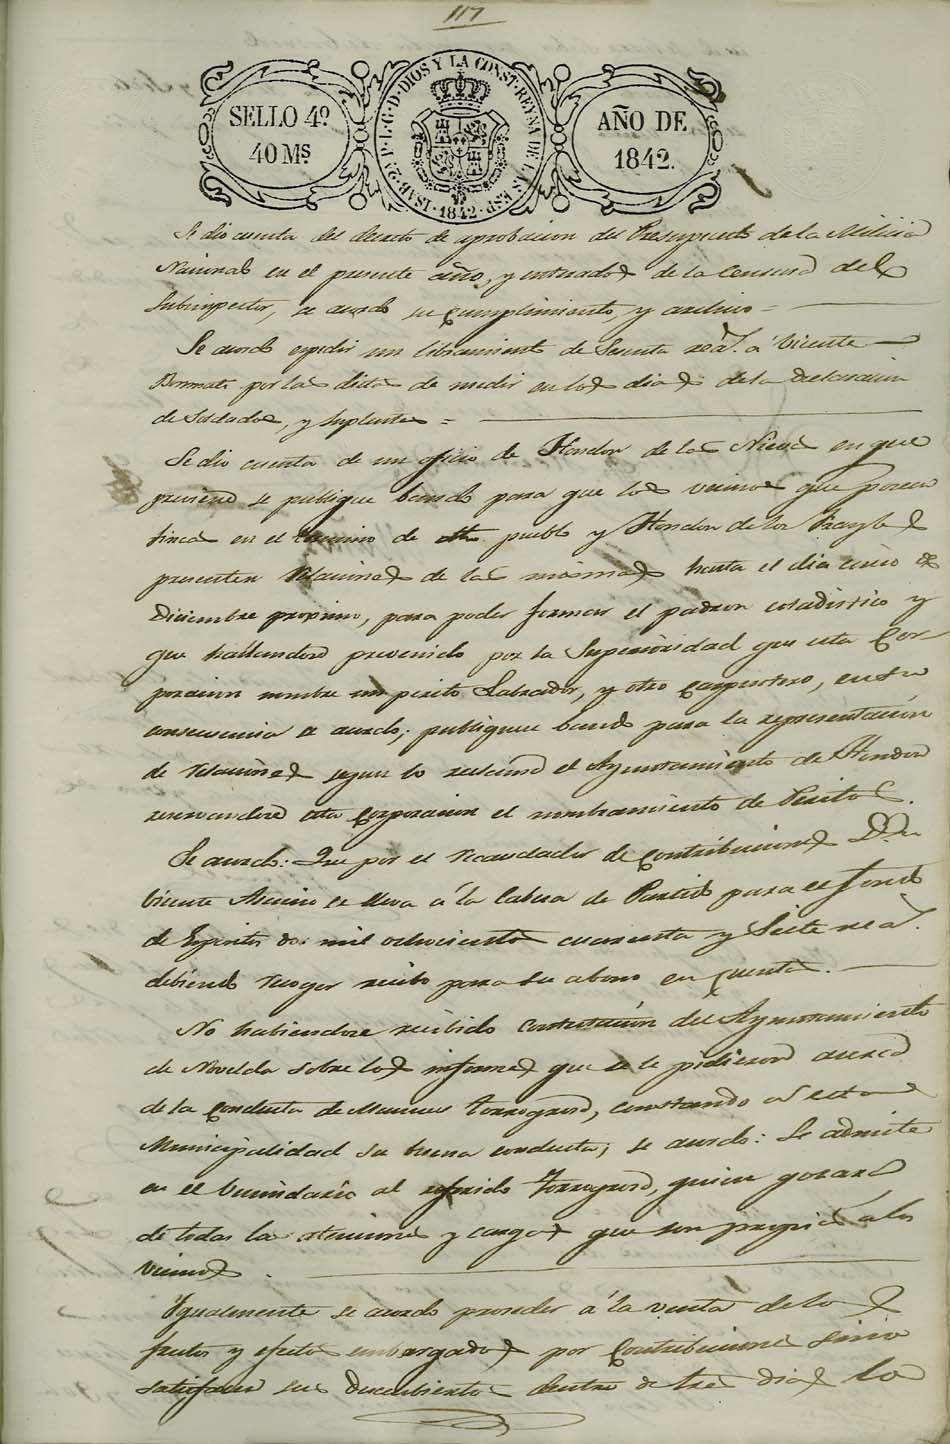 117
SELLO 4º
40 Ms
ISAB. 2ª P. L. G. D. DIOS Y LA CONST. REYNA DE LAS ESP.
1842
AÑO DE
1842.
Se dio cuenta del decreto de aprobacion del Presupuesto de la Milicia
Nacional en el presente año, y enterados de la Censura del
Subinspector, se acordo su cumplimiento y archivo =
Se acordo expedir un libramiento de Sesenta rea.s a Vicente
por las dietas de medir en los dias de la declaracion
de Soldados, y Suplentes =
Se dio cuenta de un oficio de Hondon de las Nieves en que
previene se publique bando para que los vecinos que poseen
fincas en el termino de dho pueblo y Hondon de los Frayles
presenten relaciones de las mismas hasta el dia cinco de
Diciembre proximo, para poder formar el padron estadistico y
que hallandose prevenido por la Superioridad que esta Cor-
poracion nombre un perito Labrador, y otro Carpintero, en su
consecuencia se acordo; publiquese bando para la representacion
de relaciones segun lo reclama el Ayuntamiento de Hondon
reservandose esta Corporacion el nombramiento de Peritos.
Se acordo: Que por el recaudador de Contribuciones D.n
Vicente se lleva á la Cabeza de Partido para el fondo
de dos mil ochocientos cuarenta y Siete rea.s
debiendo recoger recibo para su abono en Cuenta.
No habiendose recibido Contestacion del Ayuntamiento
de Novelda sobre los informes que se le pidieron acerca
de la Conducta de Torregrosa, constando a esta
Municipalidad su buena conducta; se acordo: Se admite
en el vecindario al referido Torregrosa, quien gozara
de todas las esenciones y cargas que son propias a los
vecinos.
Ygualmente se acordo proceder á la venta de los
frutos y efectos embargados por Contribuciones sino
satisfacen sus descubiertos dentro de tres dias lo